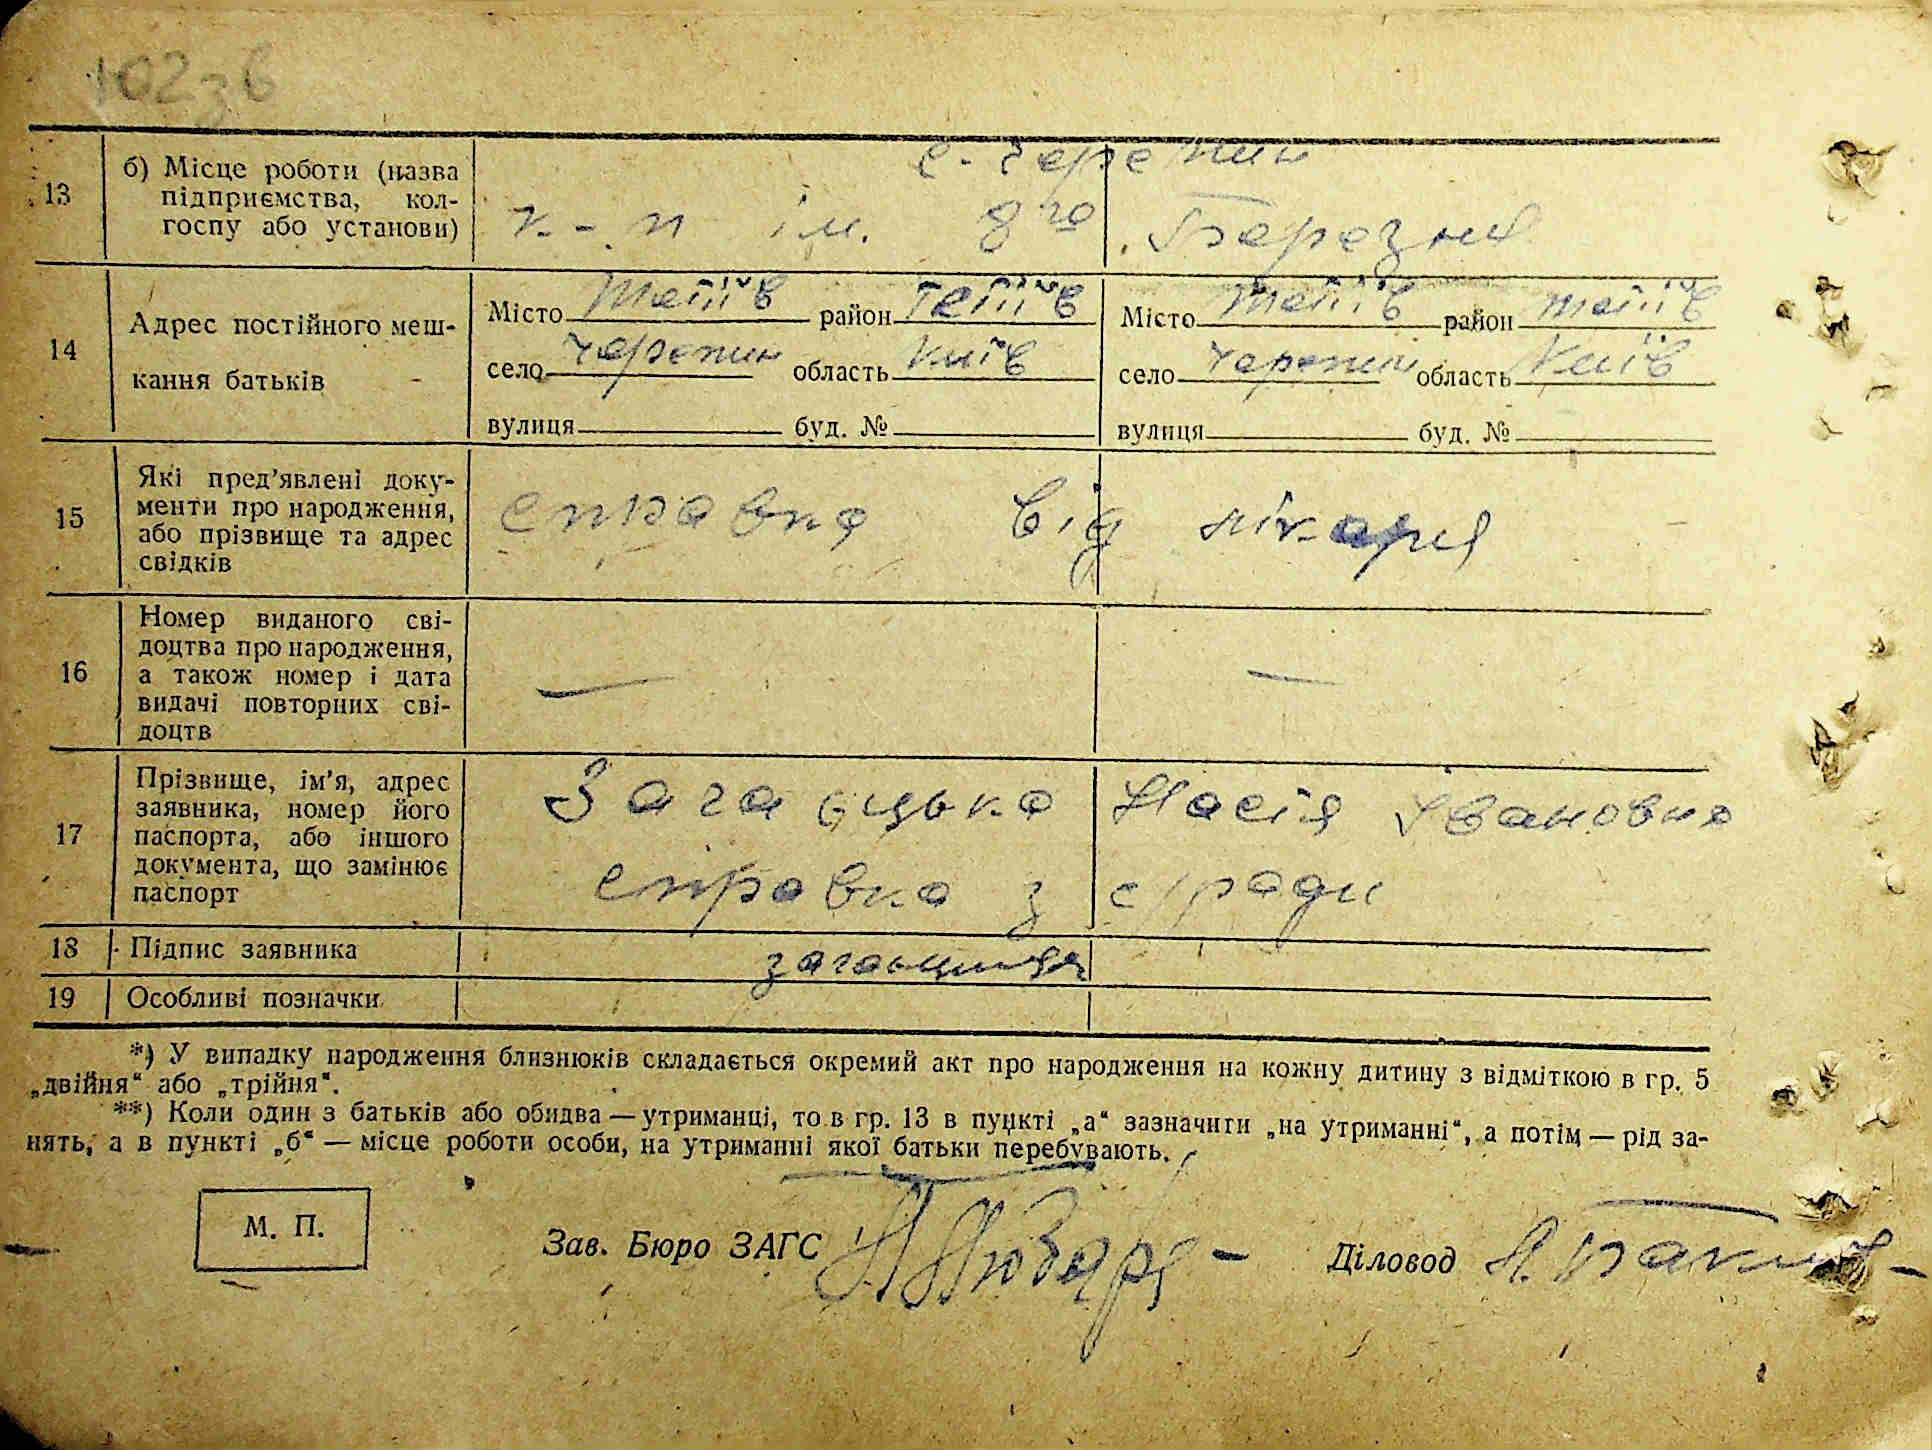 102зв
13 б) Місце роботи (назва
підприємства, кол-
госпу або установи)
с. Черепин
к-п ім. 8го Березня
14 Адрес постійного меш-
кання батьків
Місто Тетіїв район Тетіїв Місто Тетіїв район Тетіїв
село Черепин область Київ село Черепин область Київ
вулиця буд. № вулиця буд. №
15 Які пред'явлені доку-
менти про народження,
або прізвище та адрес
свідків
справка від лікаря
16 Номер виданого сві-
доцтва про народження,
а також номер і дата
видачі повторних сві-
доцтв
— —
17 Прізвище, ім'я, адрес
заявника, номер його
паспорта, або іншого
документа, що замінює
паспорт
Настя Івановна
справка з с/ради
18 Підпис заявника
19 Особливі позначки
*) У випадку народження близнюків складається окремий акт про народження на кожну дитину з відміткою в гр. 5
„двійня“ або „трійня“.
**) Коли один з батьків або обидва — утриманці, то в гр. 13 в пункті „а“ зазначити „на утриманні“, а потім — рід за-
нять, а в пункті „б“ — місце роботи особи, на утриманні якої батьки перебувають.
М. П.
Зав. Бюро ЗАГС Діловод